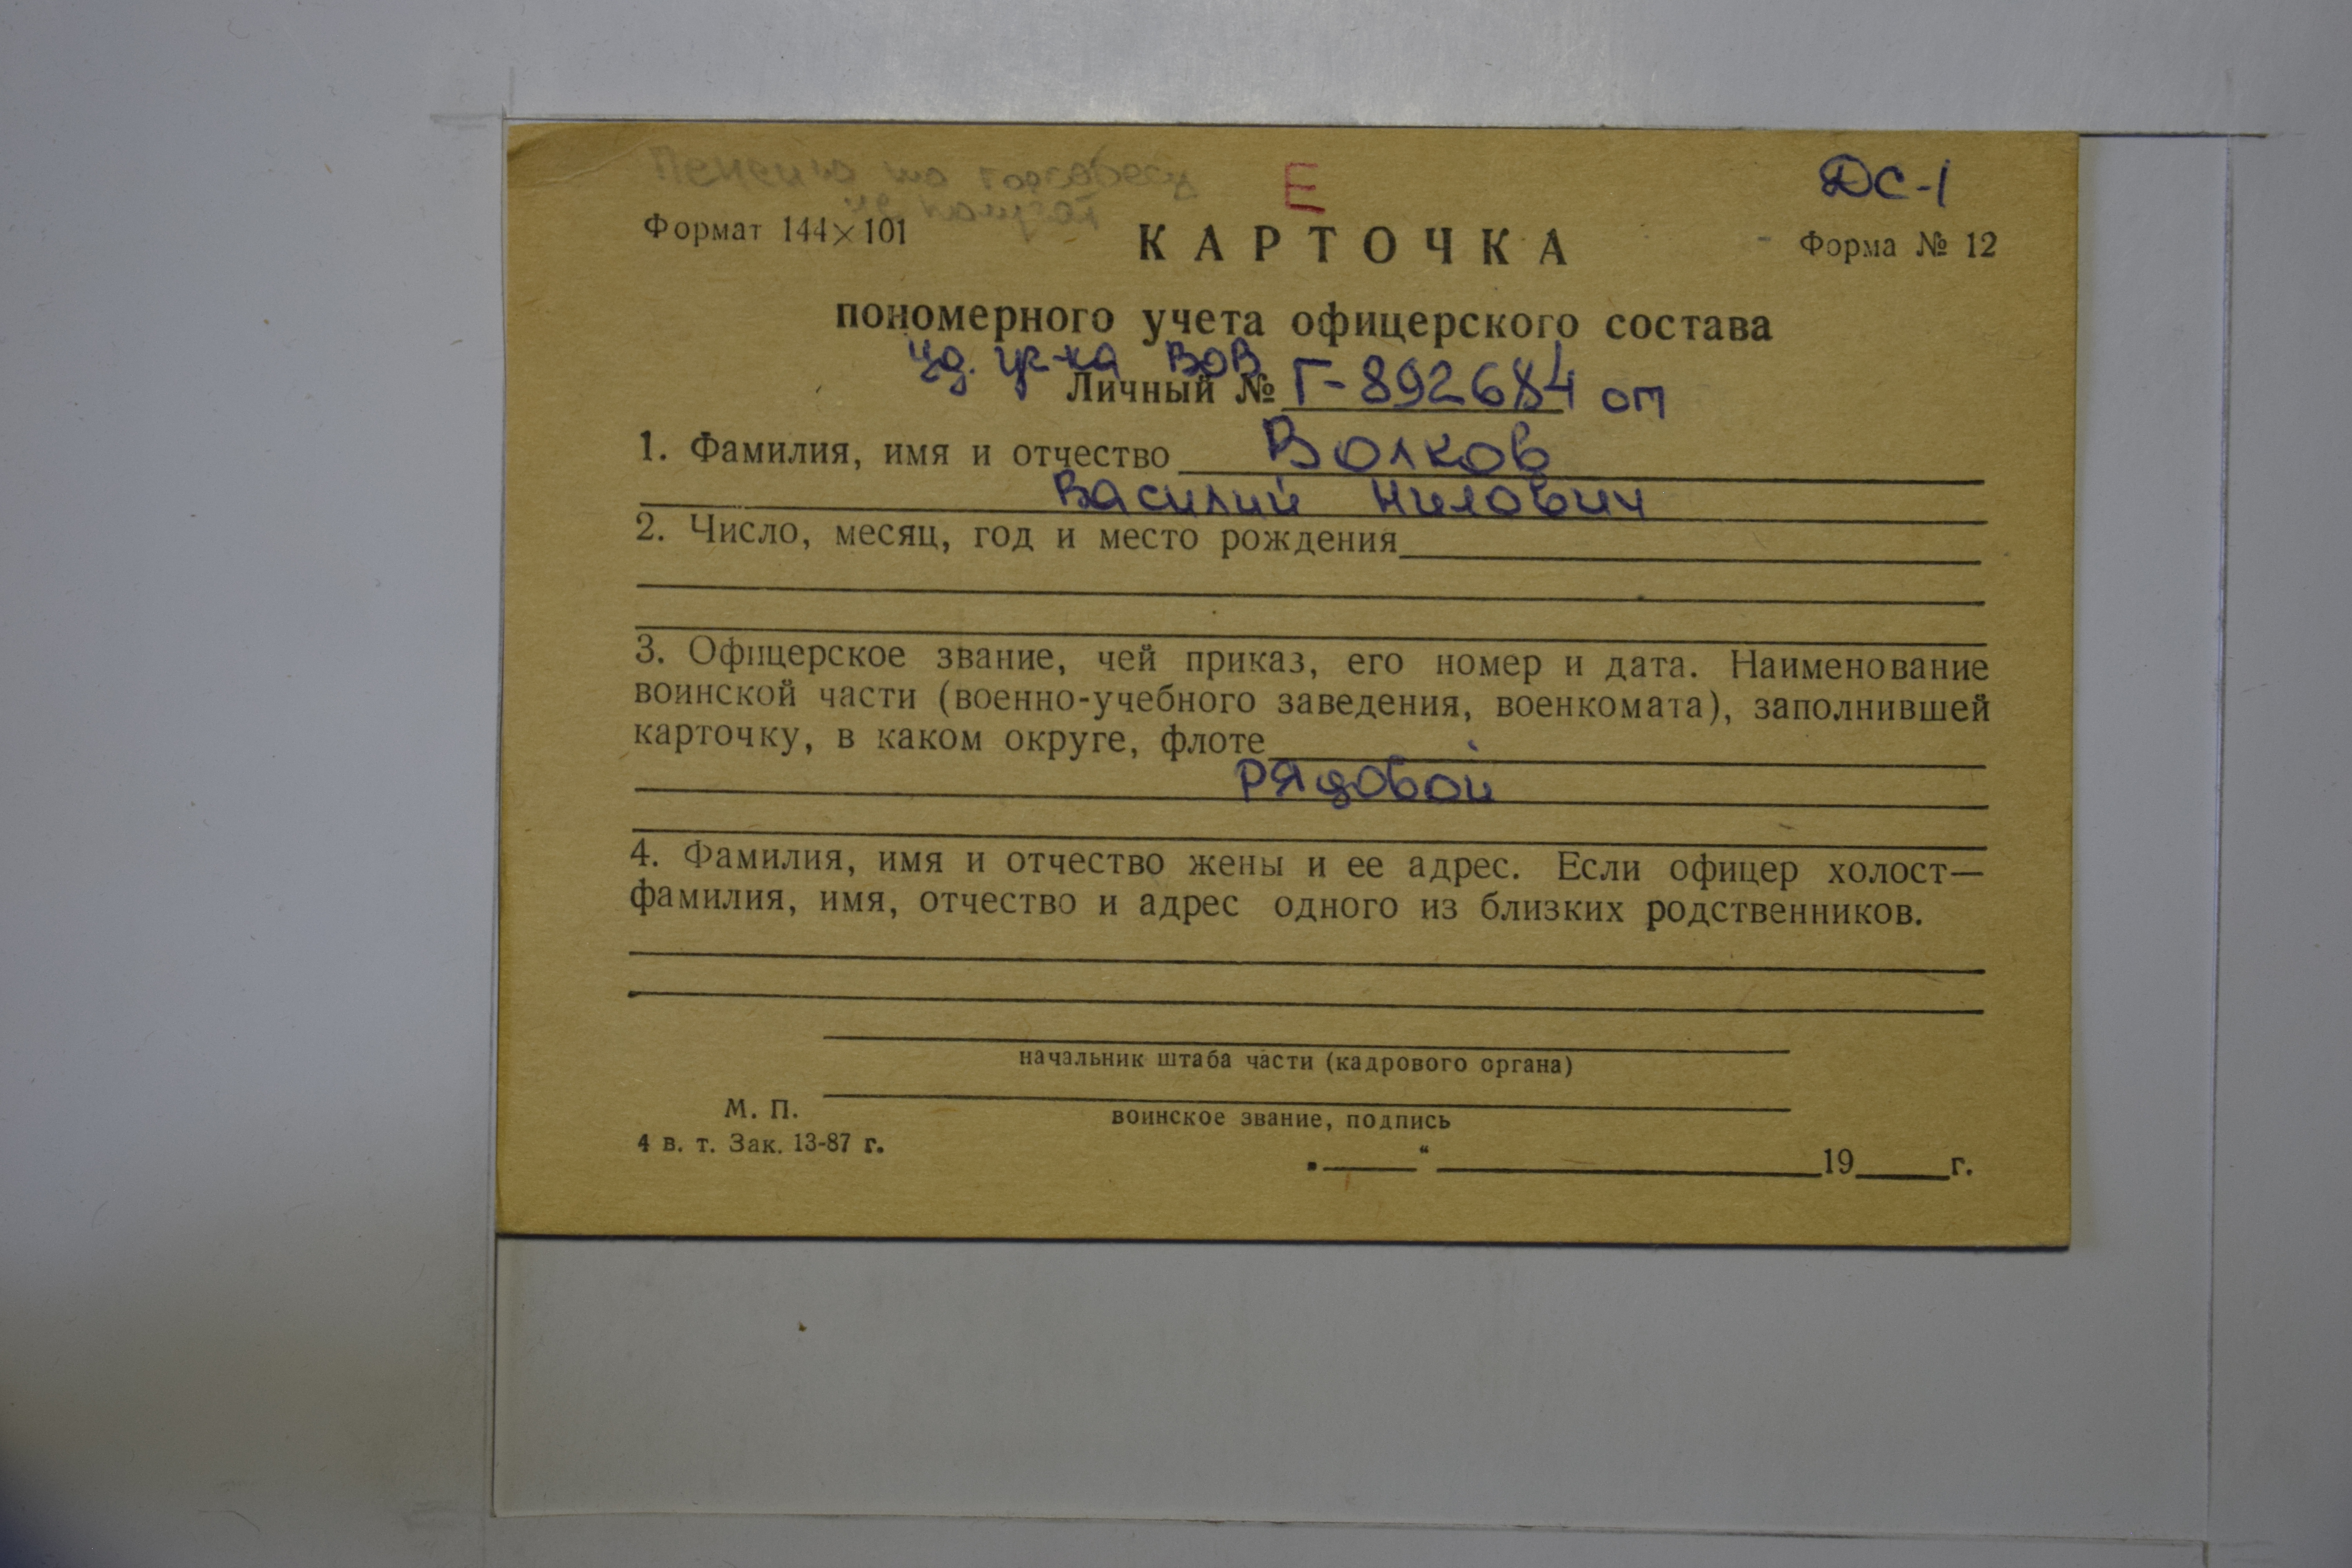 Пенсию по горсобесу
не получает
Е
ДС-1
Формат 144×101
КАРТОЧКА
Форма № 12
пономерного учета офицерского состава
уд. уч-ка ВОВ
Личный № Г-892684 от
1. Фамилия, имя и отчество Волков
Василий Нилович
2. Число, месяц, год и место рождения
3. Офицерское звание, чей приказ, его номер и дата. Наименование
воинской части (военно-учебного заведения, военкомата), заполнившей
карточку, в каком округе, флоте
рядовой
4. Фамилия, имя и отчество жены и ее адрес. Если офицер холост—
фамилия, имя, отчество и адрес одного из близких родственников.
начальник штаба части (кадрового органа)
М. П.
воинское звание, подпись
4 в. т. Зак. 13-87 г.
„ “ 19 г.